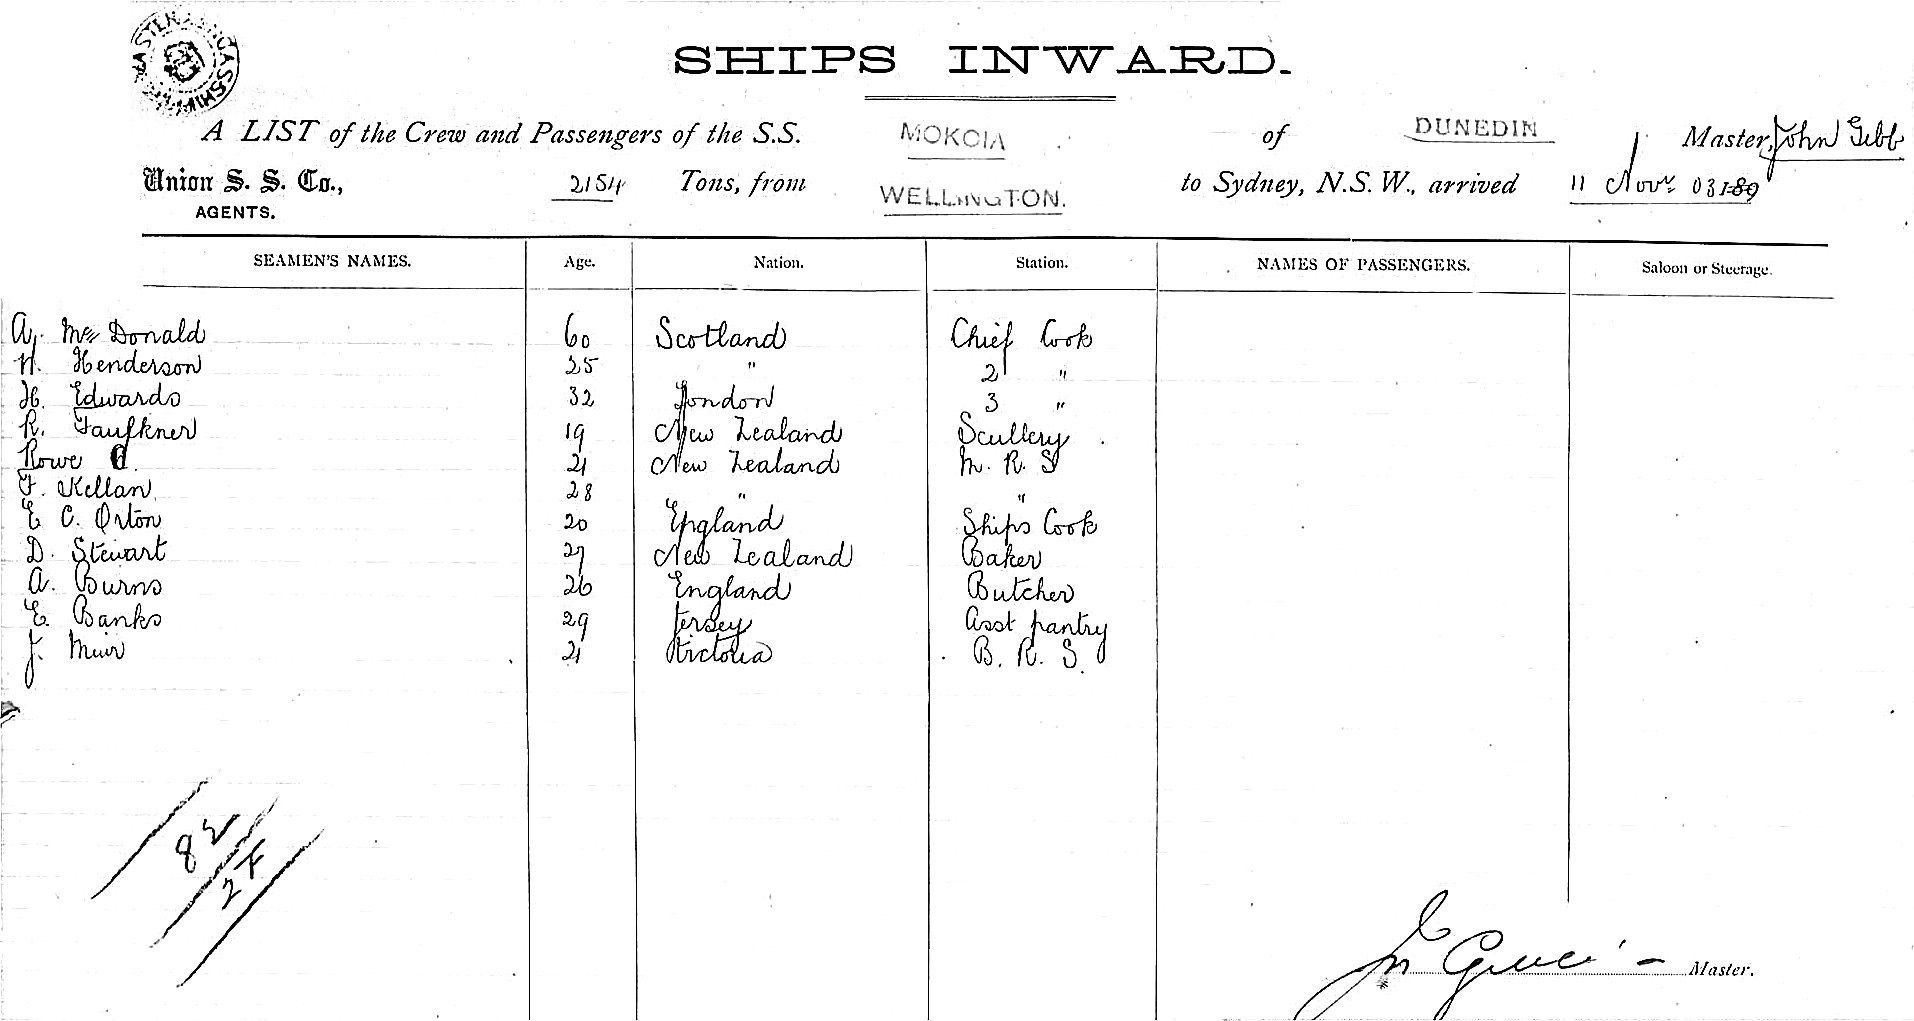 SHIPS INWARD.
A LIST of the Crew and Passengers of the S.S. MOKOIA of DUNEDIN Master, John Gibb
Union S. S. Co., 2154 Tons, from WELLINGTON. to Sydney, N.S.W., arrived 11 Novr 03 189
AGENTS.
SEAMEN'S NAMES. Age. Nation. Station. NAMES OF PASSENGERS. Saloon or Steerage.
A. Mc Donald 60 Scotland Chief Cook
H. Henderson 25 " 2 "
H. Edwards 32 London 3 "
R. Faulkner 19 New Zealand Scullery
Rowe 21 New Zealand M. R. S
F. Kellan 28 " "
E C. Orton 20 England Ships Cook
D. Stewart 27 New Zealand Baker
A. Burns 26 England Butcher
E. Banks 29 Jersey Asst pantry
J. Muir 21 Victoria B. R. S.
82
24
Master.